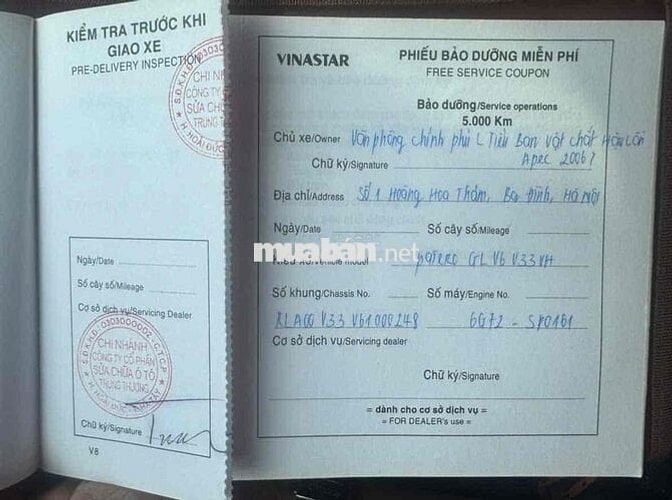 KIỂM TRA TRƯỚC KHI
GIAO XE
PRE-DELIVERY INSPECTION
S.Đ.K.H.Đ: 0303
CHI NHÁNH
CÔNG TY CỔ
SỬA CHỮA
TRUNG THƯ
H. HOÀI ĐỨC
Ngày/Date
Số cây số/Mileage
Cơ sở dịch vụ/Servicing Dealer
S.Đ.K.H.Đ: 0303000002 C.T.C.P
CHI NHÁNH
CÔNG TY CỔ PHẦN
SỬA CHỮA Ô TÔ
TRUNG THƯỢNG
Chữ ký/Signature
V8
VINASTAR
PHIẾU BẢO DƯỠNG MIỄN PHÍ
FREE SERVICE COUPON
Bảo dưỡng/Service operations
5.000 Km
Chủ xe/Owner Văn phòng chính phủ ( Tiểu Ban vật chất Hậu Cần
Chữ ký/Signature Apec 2006)
Địa chỉ/Address Số 1 Hoàng Hoa Thám, Ba Đình, Hà Nội
Ngày/Date Số cây số/Mileage
muaban.net
Kiểu xe/Vehicle model pajero GL V6 V33VH
Số khung/Chassis No. Số máy/Engine No.
RLA00 V33 V61000248 6G72 - SP0161
Cơ sở dịch vụ/Servicing dealer
Chữ ký/Signature
= dành cho cơ sở dịch vụ =
= FOR DEALER's use =